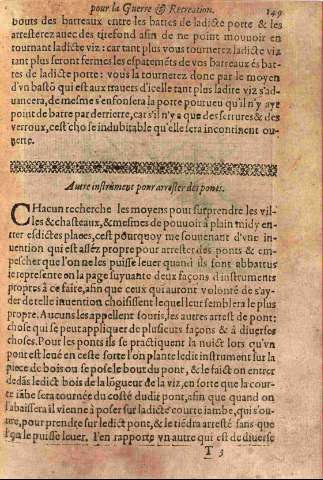 pour la Guerre & Recreation. 149
bouts des barreaux entre les battes de ladicte porte & les
arresterez auec des tirefond afin de ne point mouuoir en
tournant ladicte viz: car tant plus vous tournerez ladicte viz
tant plus seront fermes les espatemẽts de vos barreaux és bat-
tes de ladicte porte: vous la tournerez donc par le moyen
d'vn bastõ qui est aux trauers d'icelle tant plus ladite viz s'ad-
uancera, de mesme s'enfonsera la porte pourueu qu'il n'y aye
point de batre par derrierre, car s'il n'y a que des serrures & des
verroux, c'est chose indubitable qu'elle sera incontinent ou-
uerte.
Autre instrument pour arrester des ponts.
CHacun recherche les moyens pour surprendre les vil-
les & chasteaux, & mesmes de pouuoir à plain midy en-
trer esdictes places, c'est pourquoy me souuenant d'vne in-
uention qui est assez propre pour arrester des ponts & em-
pescher que l'on ne les puisse leuer quand ils sont abbattus
ie represente en la page suyuante deux façons d'instruments
propres à ce faire, afin que ceux qui auront volonté de s'ay-
der de telle inuention choisissent lequel leur semblera le plus
propre. Aucuns les appellent souris, les autres arrest de pont:
chose qui se peut appliquer de plusieurs façons & à diuerses
choses. Pour les ponts ils se practiquent la nuict lors qu'vn
pont est leué en ceste sorte l'on plante ledit instrument sur la
piece de bois ou se pose le bout du pont, & le faict on entrer
dedãs ledict bois de la lõgueur de la viz, en sorte que la cour-
te iãbe sera tournée du costé dudit pont, afin que quand on
l'abaissera il vienne à poser sur ladicte courte iambe, qui s'ou-
ure, pour prendre sur ledict pont, & le tiẽdra arresté sans que
l'on le puisse leuer. I'en rapporte vn autre qui est de diuerse
T 3